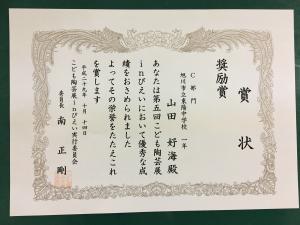 賞状
奨励賞
C部門
旭川市立東陽中学校 一年
山田 好海殿
あなたは第五回こども陶芸展
inびえいにおいて優秀な成
績をおさめられました
よってその栄誉をたたえこれ
を賞します
平成二十九年 十月 十四日
こども陶芸展inびえい実行委員会
委員長 南 正剛